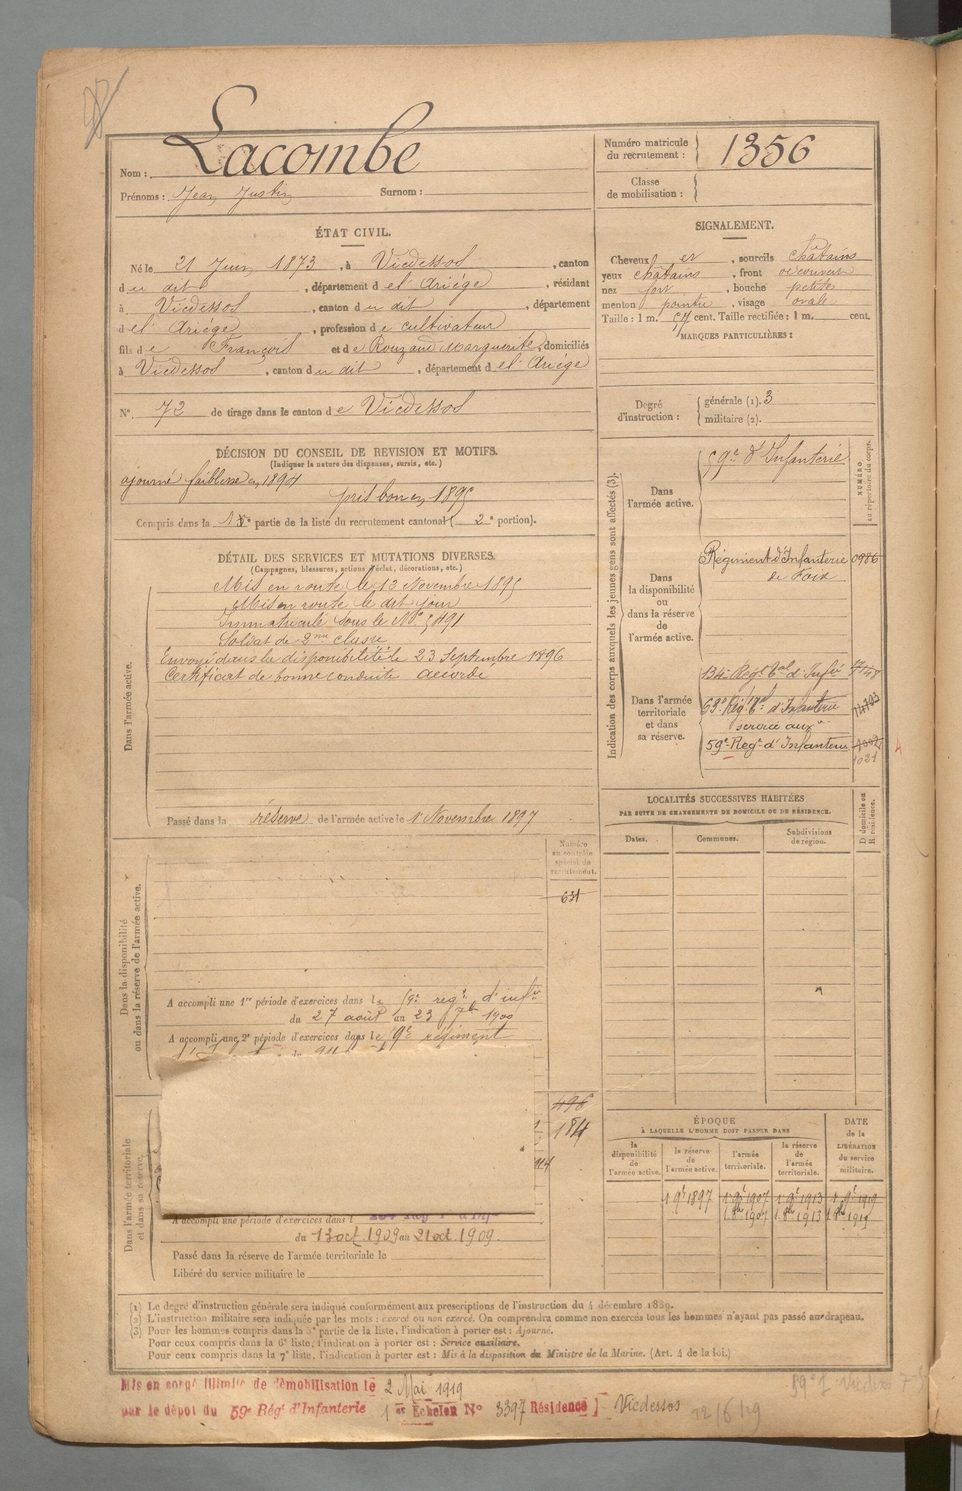 Nom : Lacombe
Prénoms : Jean Justin Surnom :
Numéro matricule du recrutement : 1356
Classe de mobilisation :
ÉTAT CIVIL.
Né le 21 Juin 1873, à Vicdessos, canton
du dit, département de l'Ariége, résidant
à Vicdessos, canton du dit, département
de l'Ariége, profession de cultivateur
fils de François et de Rouzaud Marguerite, domiciliés
à Vicdessos, canton du dit, département de l'Ariége
N° 72 de tirage dans le canton de Vicdessos
SIGNALEMENT.
Cheveux et, sourcils châtains
yeux châtains, front découvert
nez fort, bouche petite
menton pointu, visage ovale
Taille : 1 m. 57 cent. Taille rectifiée : 1 m. cent.
MARQUES PARTICULIÈRES :
Degré d'instruction : générale (1). 3
militaire (2).
DÉCISION DU CONSEIL DE REVISION ET MOTIFS.
(Indiquer la nature des dispenses, sursis, etc.)
ajourné faiblesse en 1894
pris bon en 1895
Compris dans la 1e partie de la liste du recrutement cantonal ( 2e portion).
DÉTAIL DES SERVICES ET MUTATIONS DIVERSES.
(Campagnes, blessures, actions d'éclat, décorations, etc.)
Dans l'armée active.
Mis en route le 13 Novembre 1895
Mis en route le dit jour
Immatriculé sous le No 5491
Soldat de 2me classe
Envoyé dans la disponibilité le 23 Septembre 1896
Certificat de bonne conduite accordé
Passé dans la réserve de l'armée active le 1 Novembre 1897
Indication des corps auxquels les jeunes gens sont affectés (3).
NUMÉRO au répertoire du corps.
Dans l'armée active.
59e d'Infanterie
Dans la disponibilité ou dans la réserve de l'armée active.
Régiment d'Infanterie de Foix 0986
Dans l'armée territoriale et dans sa réserve.
134e Régt tal d'Infie
63e Rég. tal d'Infanterie
service auxre
59e Regt d'Infanterie
1021
LOCALITÉS SUCCESSIVES HABITÉES
PAR SUITE DE CHANGEMENTS DE DOMICILE OU DE RÉSIDENCE.
Dates. Communes. Subdivisions de région. D domicile ou R résidence.
Dans la disponibilité ou dans la réserve de l'armée active.
Numéro au contrôle spécial du recrutement.
631
A accompli une 1re période d'exercices dans le 59e regt d'infie
du 27 août au 23 7bre 1900
A accompli une 2e période d'exercices dans le 9e régiment
496
184
Dans l'armée territoriale et dans sa réserve.
A accompli une période d'exercices dans l
du 13 oct. 1909 au 21 oct. 1909.
Passé dans la réserve de l'armée territoriale le
Libéré du service militaire le
ÉPOQUE
À LAQUELLE L'HOMME DOIT PASSER DANS
la disponibilité de l'armée active. la réserve de l'armée active. l'armée territoriale. la réserve de l'armée territoriale.
DATE de la LIBÉRATION du service militaire.
1 9e 1897 1 9e 1907 1 9e 1913 1 9e 1919
1 8bre 1907 1 8bre 1913 1 8bre 1919
(1) Le degré d'instruction générale sera indiqué conformément aux prescriptions de l'instruction du 4 décembre 1889.
(2) L'instruction militaire sera indiquée par les mots : exercé ou non exercé. On comprendra comme non exercés tous les hommes n'ayant pas passé au drapeau.
(3) Pour les hommes compris dans la 5e partie de la liste, l'indication à porter est : Ajourné.
Pour ceux compris dans la 6e liste, l'indication à porter est : Service auxiliaire.
Pour ceux compris dans la 7e liste, l'indication à porter est : Mis à la disposition du Ministre de la Marine. (Art. 4 de la loi.)
Mis en congé illimité de démobilisation le 2 Mai 1919
par le dépôt du 59e Régt d'Infanterie 1er Echelon N° 3397 Résidence Vicdessos